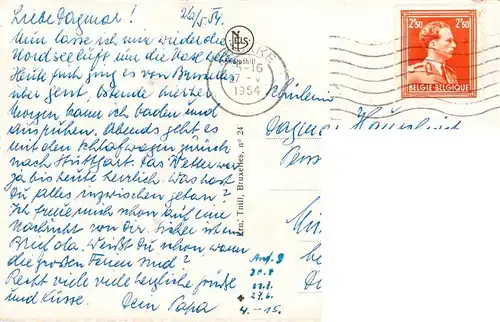 Liebe Dagmar! 26/5. 54.
Nun lasse ich mir wieder die
Nordseeluft um die
Heute früh ging es von Brüssel
über Gent, Ostende hierher.
Morgen kann ich baden und
ausruhen. Abends geht es
mit dem Schlafwagen zurück
nach Stuttgart. Das Wetter war
ja bis heute herrlich. Was hast
Du alles inzwischen getan?
Ich freue mich schon auf eine
Nachricht von Dir. Sicher ist ein
Brief da. Weißt Du schon, wann
die großen Ferien sind?
Recht viele viele herzliche Grüße
und Küsse. Dein Papa
NELS
Ern. Thill, Bruxelles, n° 24
16
1954
2F50 2F50
BELGIE-BELGIQUE
Schülerin
Dagmar
Anf. 8
27.6.
4.-15.